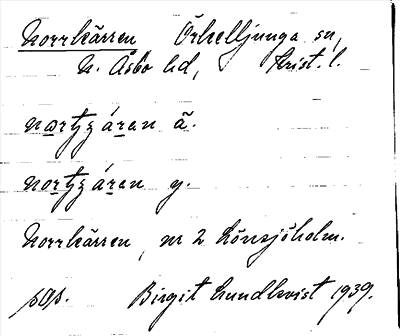 Norrkärren Örkelljunga sn,
N. Åsbo hd, Krist. l.
nortzáren ã.
nortzáren y.
Norrkärren, nr 2 Lönsjöholm.
sgs. Birgit Lundkvist 1939.